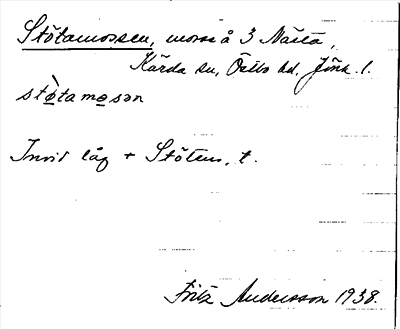 Stötamossen, mosse å 3 Nästa,
Kärda sn, Östbo hd, Jönk. l.
stø̀tamosən
Invid låg + Stöten, t.
Fritz Andersson 1938.